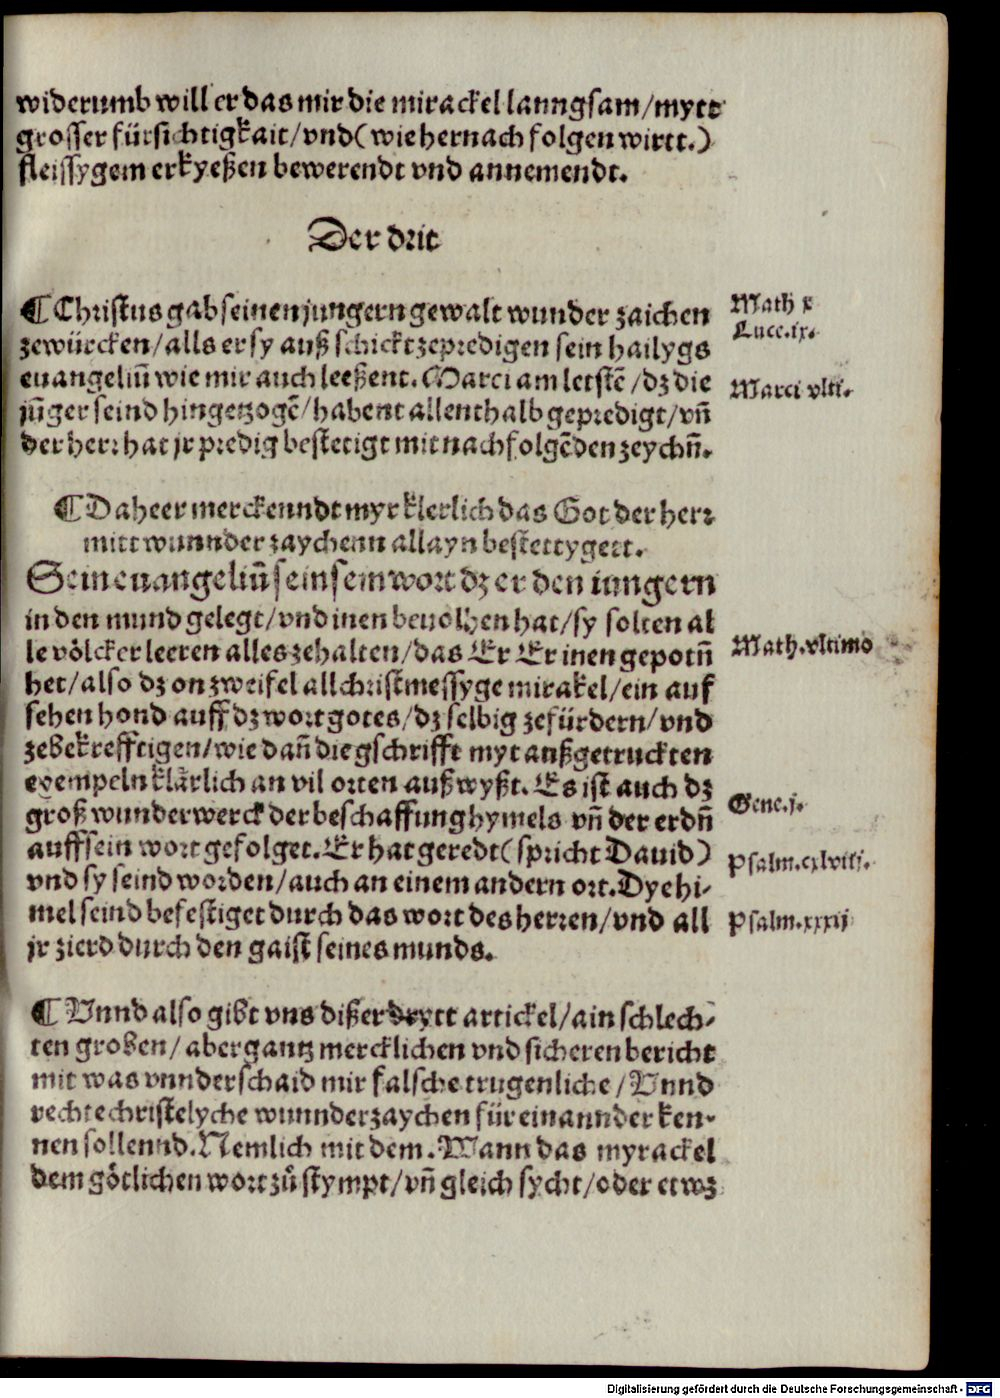 widerumb will er das mir die mirackel lanngsam/mytt
grosser fürsichtigkait/vnd(wie hernach folgen wirtt.)
fleissygem erkyeßen bewerendt vnd annemendt.
Der drit
¶Christus gab seinen jungern gewalt wunder zaichen
zewürcken/alls er sy auß schickt zepredigen sein hailygs
euangeliū wie mir auch leeßent. Marci am letstē/dz die
jūger seind hingetzogē/habent allenthalb gepredigt/vn̄
der herr hat jr predig bestetigt mit nachfolgēden zeychn̄.
Math x
Luce.ix.
Marci vlti.
¶Daheer merckenndt myr klerlich das Got der herr
mitt wunnder zaychenn allayn bestettygett.
Sein euangeliū sein sein wort dz er den iungern
in den mund gelegt/vnd inen beuolhen hat/sy solten al
le völcker leeren alles zehalten/das Er Er inen gepotn̄
het/also dz on zweifel all christmessyge mirakel/ein auf
sehen hond auff dz wort gotes/dz selbig zefürdern/vnd
zebekrefftigen/wie dan̄ die gschrifft myt außgetruckten
exempeln klärlich an vil orten außwyßt. Es ist auch dz
groß wunderwerck der beschaffung hymels vn̄ der erdn̄
auff sein wort gefolget. Er hat geredt(spricht Dauid)
vnd sy seind worden/auch an einem andern ort. Dye hi-
mel seind befestiget durch das wort des herren/vnd all
jr zierd durch den gaist seines munds.
Math.vltimo
Gene.j.
Psalm.cxlviij.
Psalm.xxxij
¶Vnnd also gibt vns dißer drytt artickel/ain schlech-
ten groben/aber gantz mercklichen vnd sicheren bericht
mit was vnnderschaid mir falsche trugenliche/Vnnd
rechte christelyche wunnderzaychen für einannder ken-
nen sollennd. Nemlich mit dem. Wann das myrackel
dem götlichen wort zů stympt/vn̄ gleich sycht/oder etwz
Digitalisierung gefördert durch die Deutsche Forschungsgemeinschaft - DFG